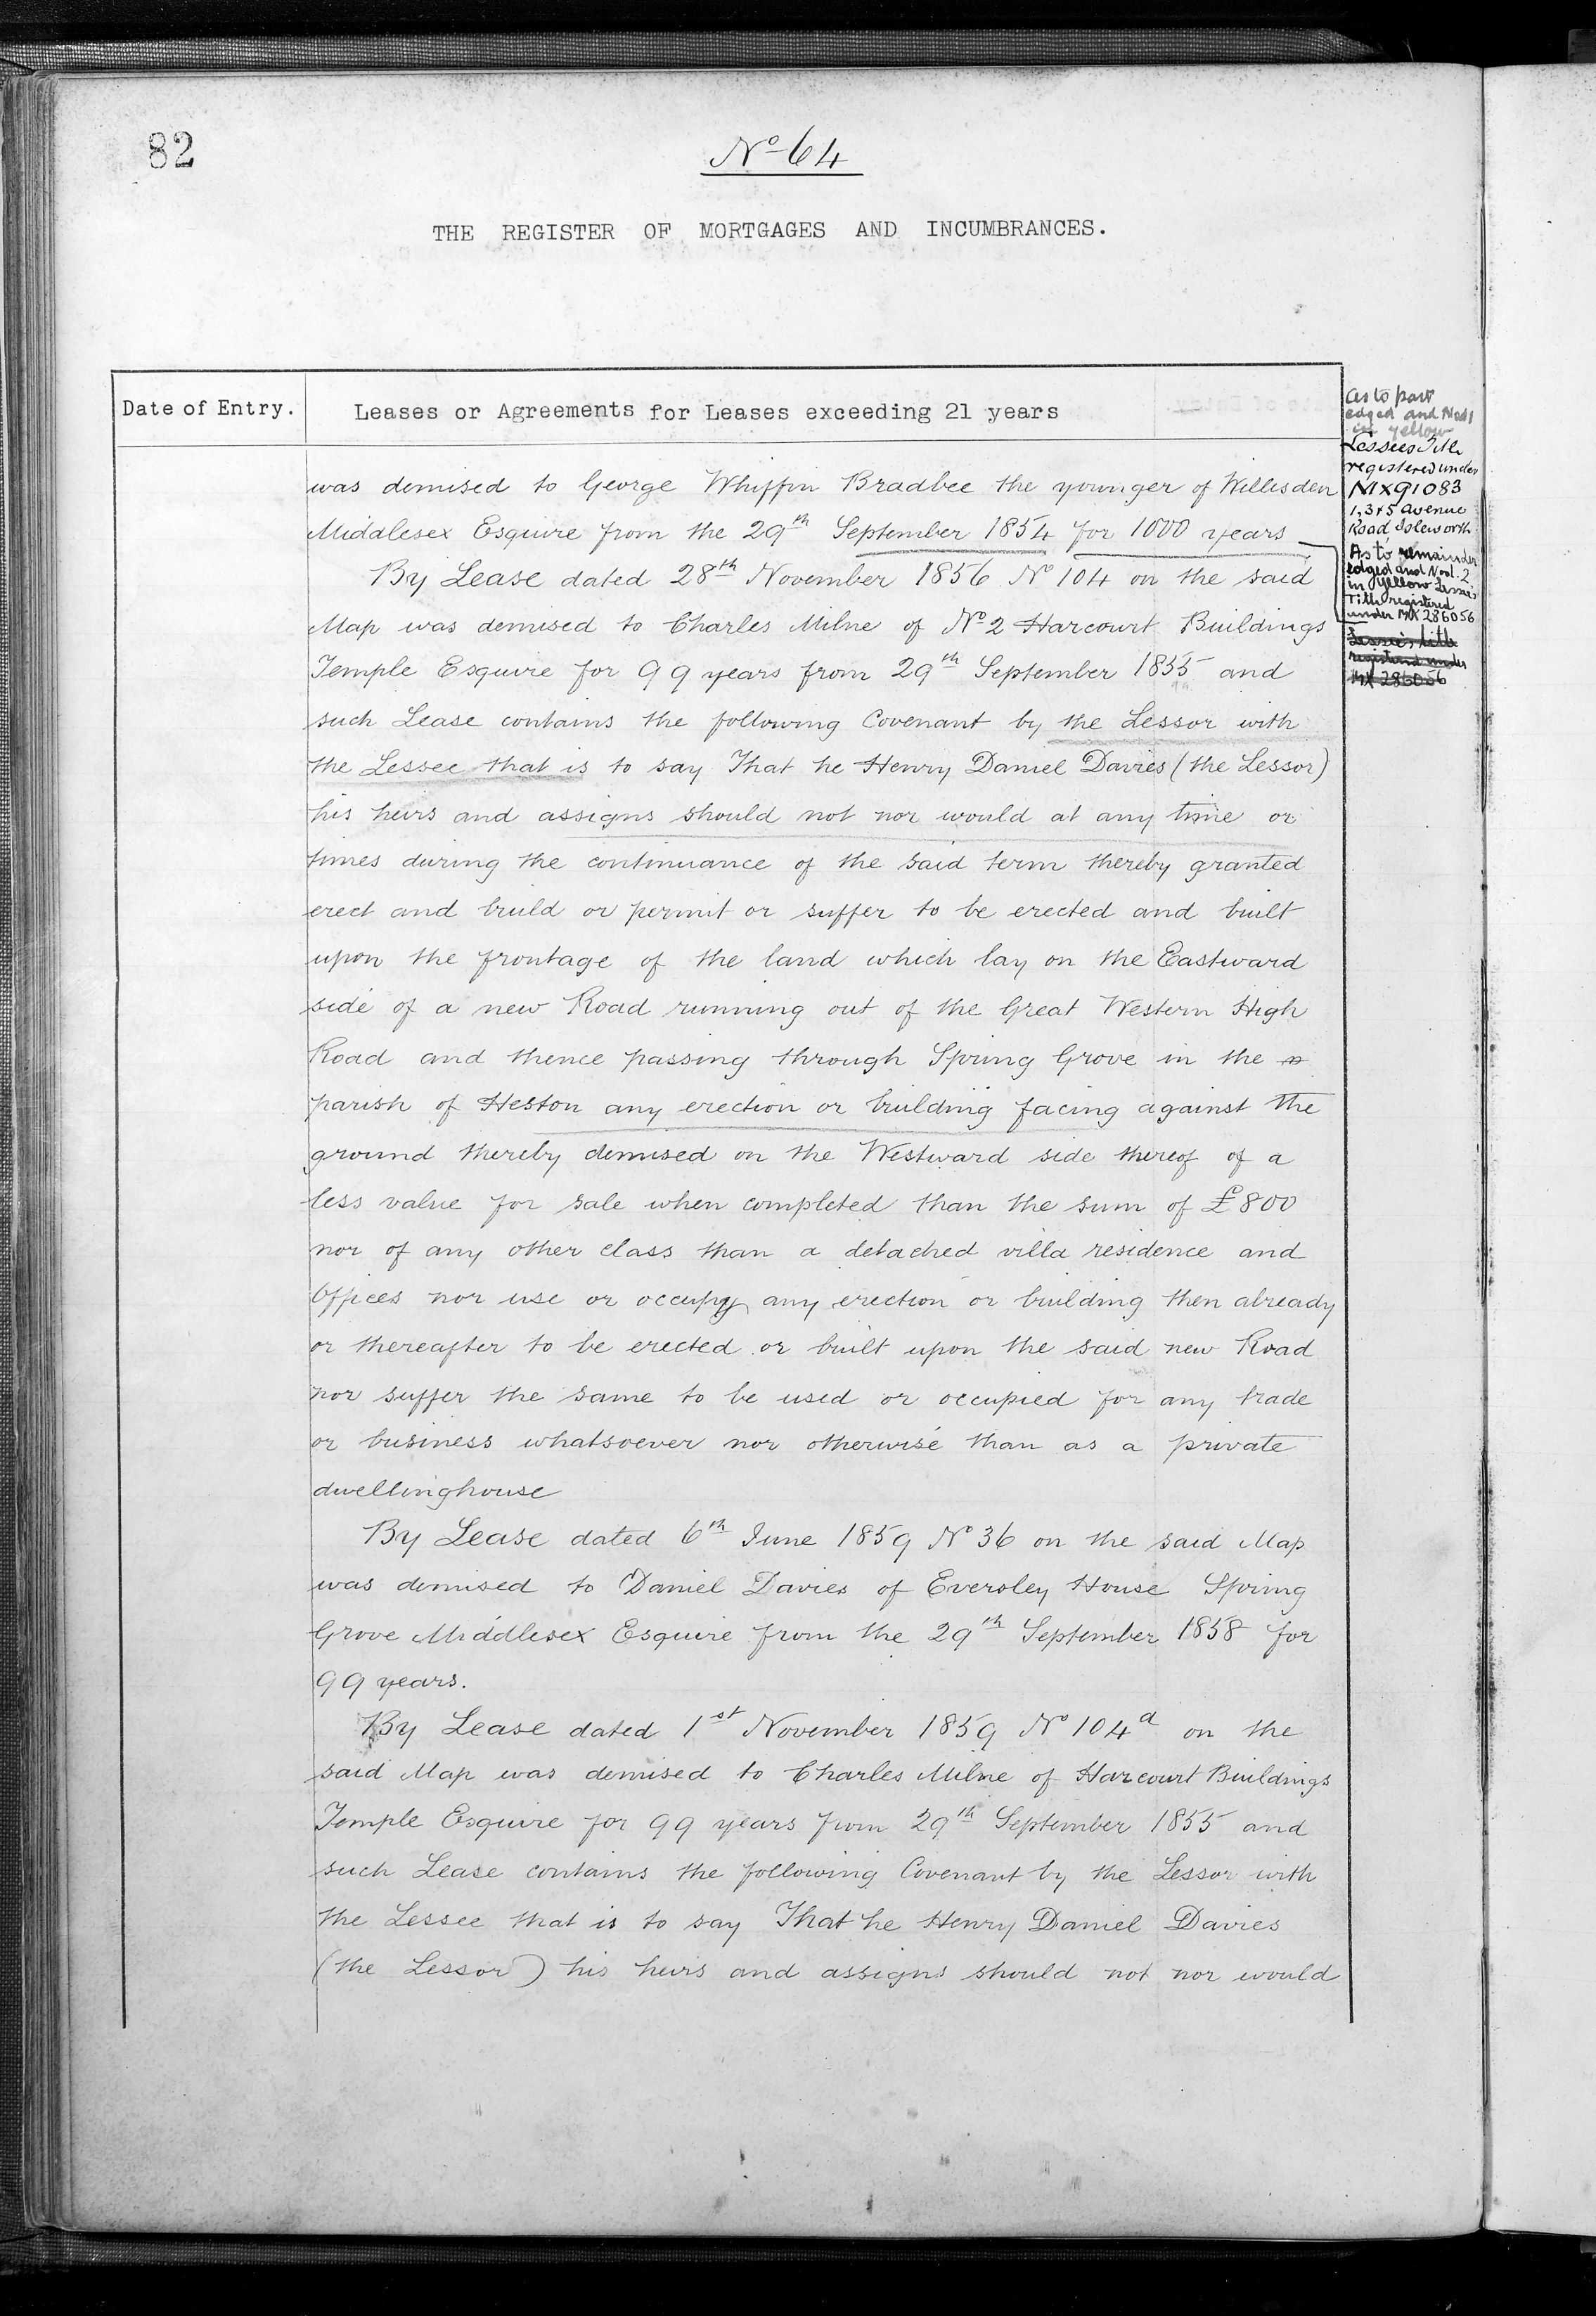 82
No 64
THE REGISTER OF MORTGAGES AND INCUMBRANCES.
Date of Entry.
Leases or Agreements for Leases exceeding 21 years
was demised to George Whiffin Bradbee the younger of Willesden
Middlesex Esquire from the 29th September 1854 for 1000 years
By Lease dated 28th November 1856 No 104 on the said
Map was demised to Charles Milne of No 2 Harcourt Buildings
Temple Esquire for 99 years from 29th September 1855 and
such Lease contains the following Covenant by the Lessor with
the Lessee that is to say That he Henry Daniel Davies (the Lessor)
his heirs and assigns should not nor would at any time or
times during the continuance of the said term thereby granted
erect and build or permit or suffer to be erected and built
upon the frontage of the land which lay on the Eastward
side of a new Road running out of the Great Western High
Road and thence passing through Spring Grove in the
parish of Heston any erection or building facing against the
ground thereby demised on the Westward side thereof of a
less value for sale when completed than the sum of £800
nor of any other class than a detached villa residence and
Offices nor use or occupy any erection or building then already
or thereafter to be erected or built upon the said new Road
nor suffer the same to be used or occupied for any trade
or business whatsoever nor otherwise than as a private
dwellinghouse
By Lease dated 6th June 1859 No 36 on the said Map
was demised to Daniel Davies of Eversley House Spring
Grove Middlesex Esquire from the 29th September 1858 for
99 years.
By Lease dated 1st November 1859 No 104a on the
said Map was demised to Charles Milne of Harcourt Buildings
Temple Esquire for 99 years from 29th September 1855 and
such Lease contains the following Covenant by the Lessor with
the Lessee that is to say That he Henry Daniel Davies
(the Lessor) his heirs and assigns should not nor would
As to part
edged and No 1
in yellow
Lessees Title
registered under
MX91083
1, 3 & 5 Avenue
Road, Isleworth
As to remainder
edged and Nod. 2
in yellow Lessee's
Title registered
under MX 286056
Lessee's title
registered under
MX 286056